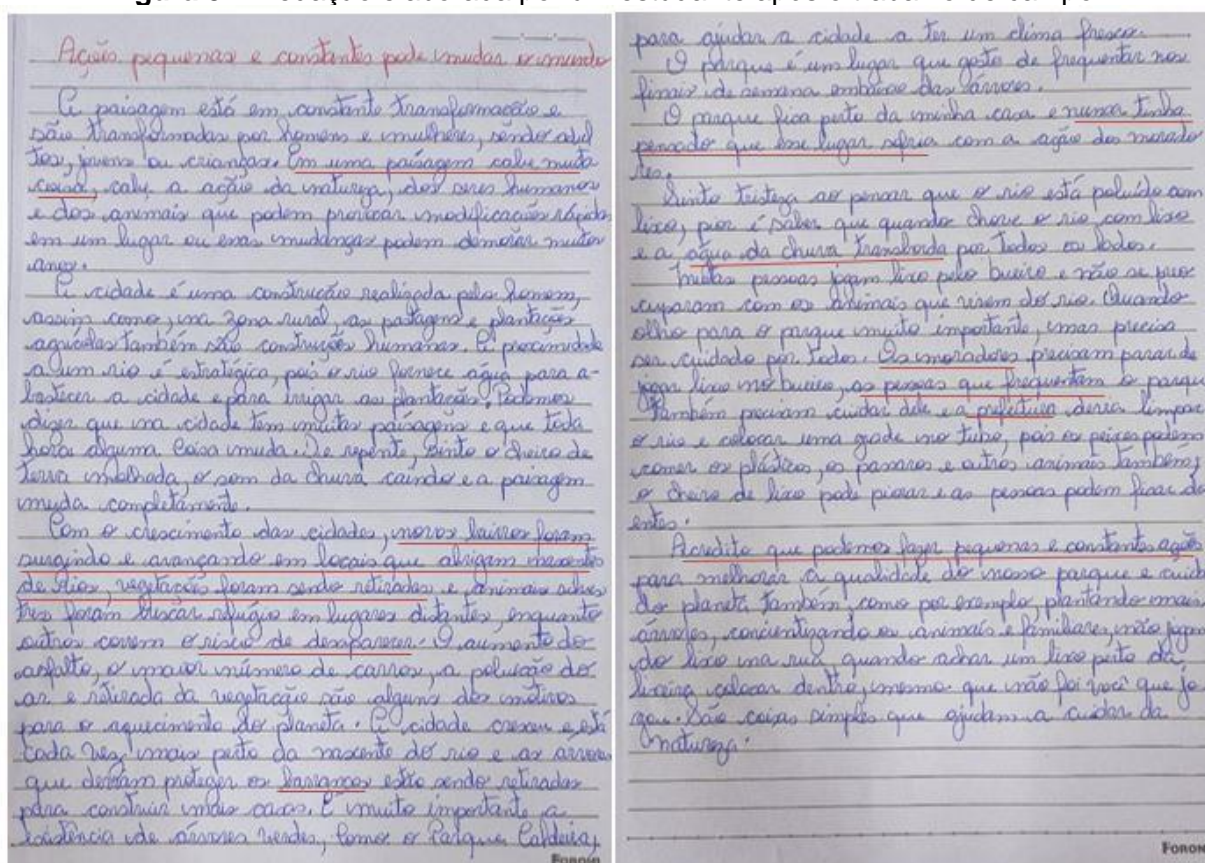 Ações pequenas e constantes pode mudar o mundo
A paisagem está em constante transformação e
são transformadas por homens e mulheres, sendo adul
tos, jovens ou crianças. Em uma paisagem cabe muita
coisa, cabe a ação da natureza, dos seres humanos
e dos animais que podem provocar modificações rápidas
em um lugar ou essas mudanças podem demorar muitos
anos.
A cidade é uma construção realizada pelo homem,
assim como, na zona rural, as pastagens e plantações
agrícolas também são construções humanas. A proximidade
a um rio é estratégica, pois o rio fornece água para a-
bastecer a cidade e para irrigar as plantações. Podemos
dizer que na cidade tem muitas paisagens e que toda
hora alguma coisa muda. De repente, sinto o cheiro de
terra molhada, o som da chuva caindo e a paisagem
muda completamente.
Com o crescimento das cidades, novos bairros foram
surgindo e avançando em locais que abrigam nascentes
de rios, vegetações foram sendo retiradas e animais silves
tres foram buscar refúgio em lugares distantes, enquanto
outros correm o risco de desaparecer. O aumento do
asfalto, o maior número de carros, a poluição do
ar e retirada da vegetação são alguns dos motivos
para o aquecimento do planeta. A cidade cresceu e está
cada vez mais perto da nascente do rio e as árvores
que deviam proteger os estão sendo retiradas
para construir mais casas. É muito importante a
existência de árvores verdes, como o Parque Caldeira,
FORONI
para ajudar a cidade a ter um clima fresco.
O parque é um lugar que gosto de frequentar nos
finais de semana embaixo das árvores.
O parque fica perto da minha casa e nunca tinha
pensado que esse lugar sofria com a ação dos morado
res.
Sinto tristeza ao pensar que o rio está poluído com
lixo, pior é saber que quando chove o rio com lixo
e a água da chuva transborda por todos os lados.
Muitas pessoas jogam lixo pelo bueiro e não se preo
cuparam com os animais que vivem do rio. Quando
olho para o parque muito importante, mas precisa
ser cuidado por todos. Os moradores precisam parar de
jogar lixo no bueiro, as pessoas que frequentam o parque
também precisam cuidar dele e a prefeitura devia limpar
o rio e colocar uma grade no tubo, pois os peixes podem
comer os plásticos, os passaros e outros animais também,
o cheiro de lixo pode piorar e as pessoas podem ficar do
entes.
Acredito que podemos fazer pequenas e constantes ações
para melhorar a qualidade do nosso parque e cuida
do planeta também, como por exemplo, plantando mais
árvores, concientizando os animais e familiares, não jogan
do lixo na rua, quando achar um lixo perto da
lixeira colocar dentro, mesmo que não foi você que jo
gou. São coisas simples que ajudam a cuidar da
natureza.
FORON